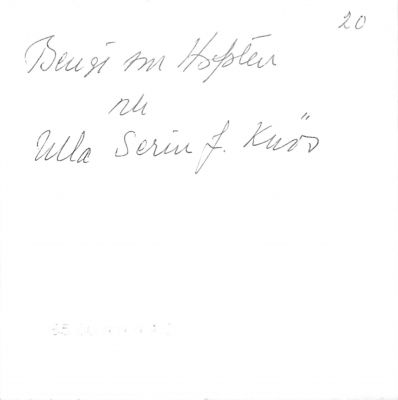 20
Bengt von Hofsten
och
Ulla Serin f. Knös